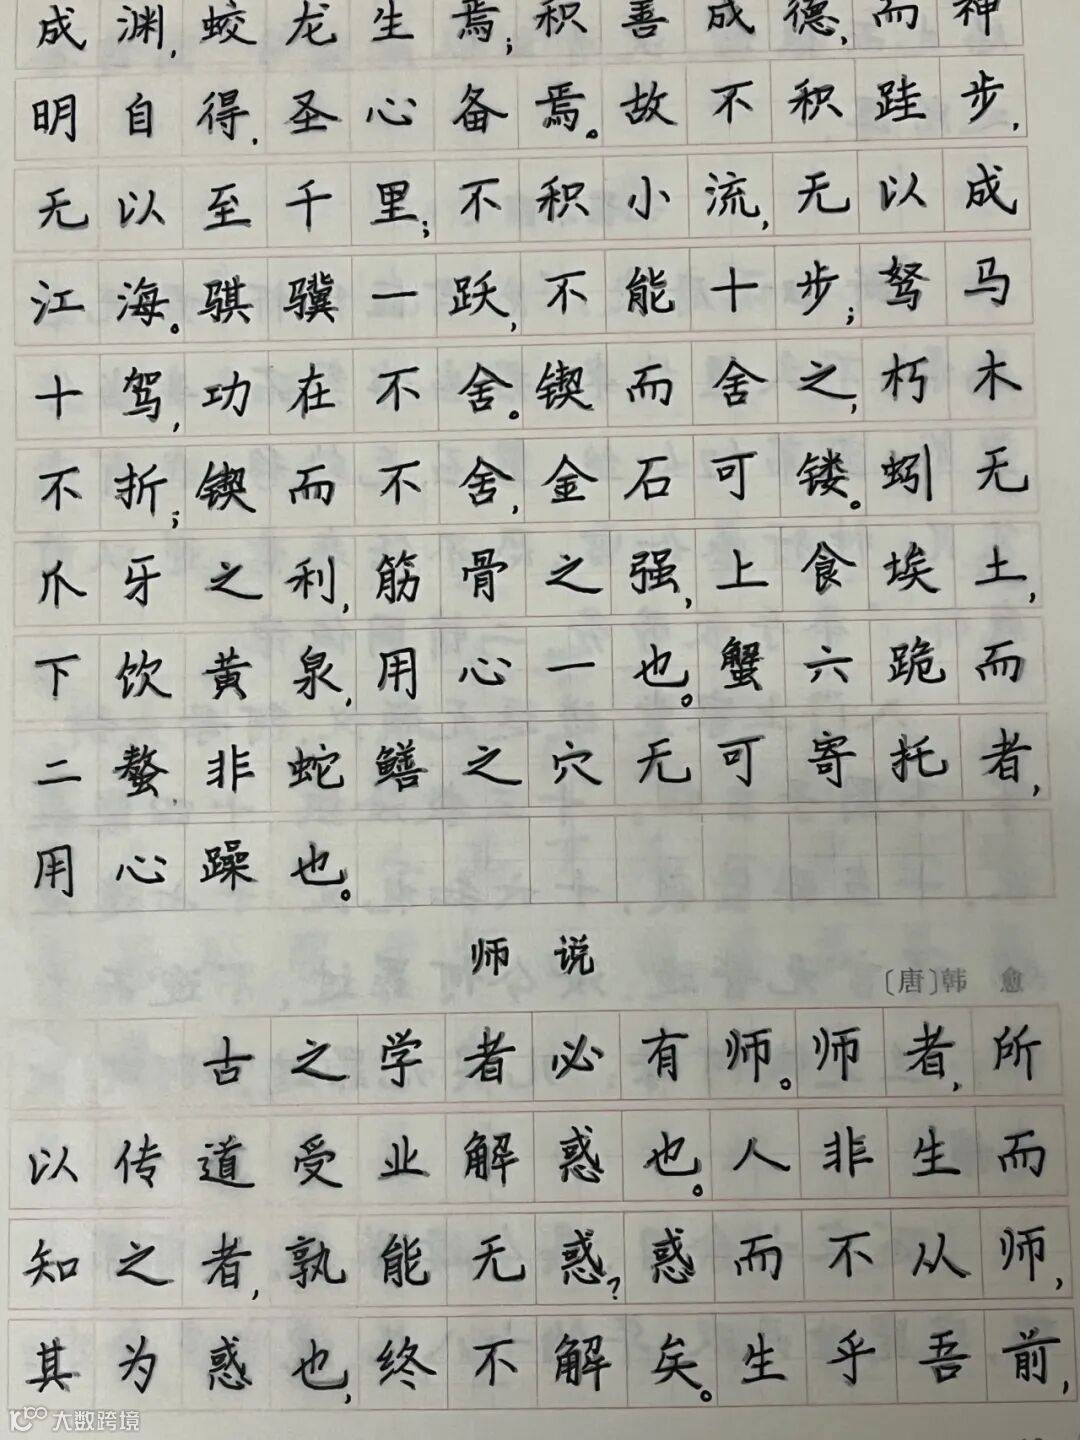 成渊,蛟龙生焉;积善成德,而神
明自得,圣心备焉。故不积跬步,
无以至千里;不积小流,无以成
江海。骐骥一跃,不能十步;驽马
十驾,功在不舍。锲而舍之,朽木
不折;锲而不舍,金石可镂。蚓无
爪牙之利,筋骨之强,上食埃土,
下饮黄泉,用心一也。蟹六跪而
二螯,非蛇鳝之穴无可寄托者,
用心躁也。
师说
〔唐〕韩愈
古之学者必有师。师者,所
以传道受业解惑也。人非生而
知之者,孰能无惑?惑而不从师,
其为惑也,终不解矣。生乎吾前,
大数跨境